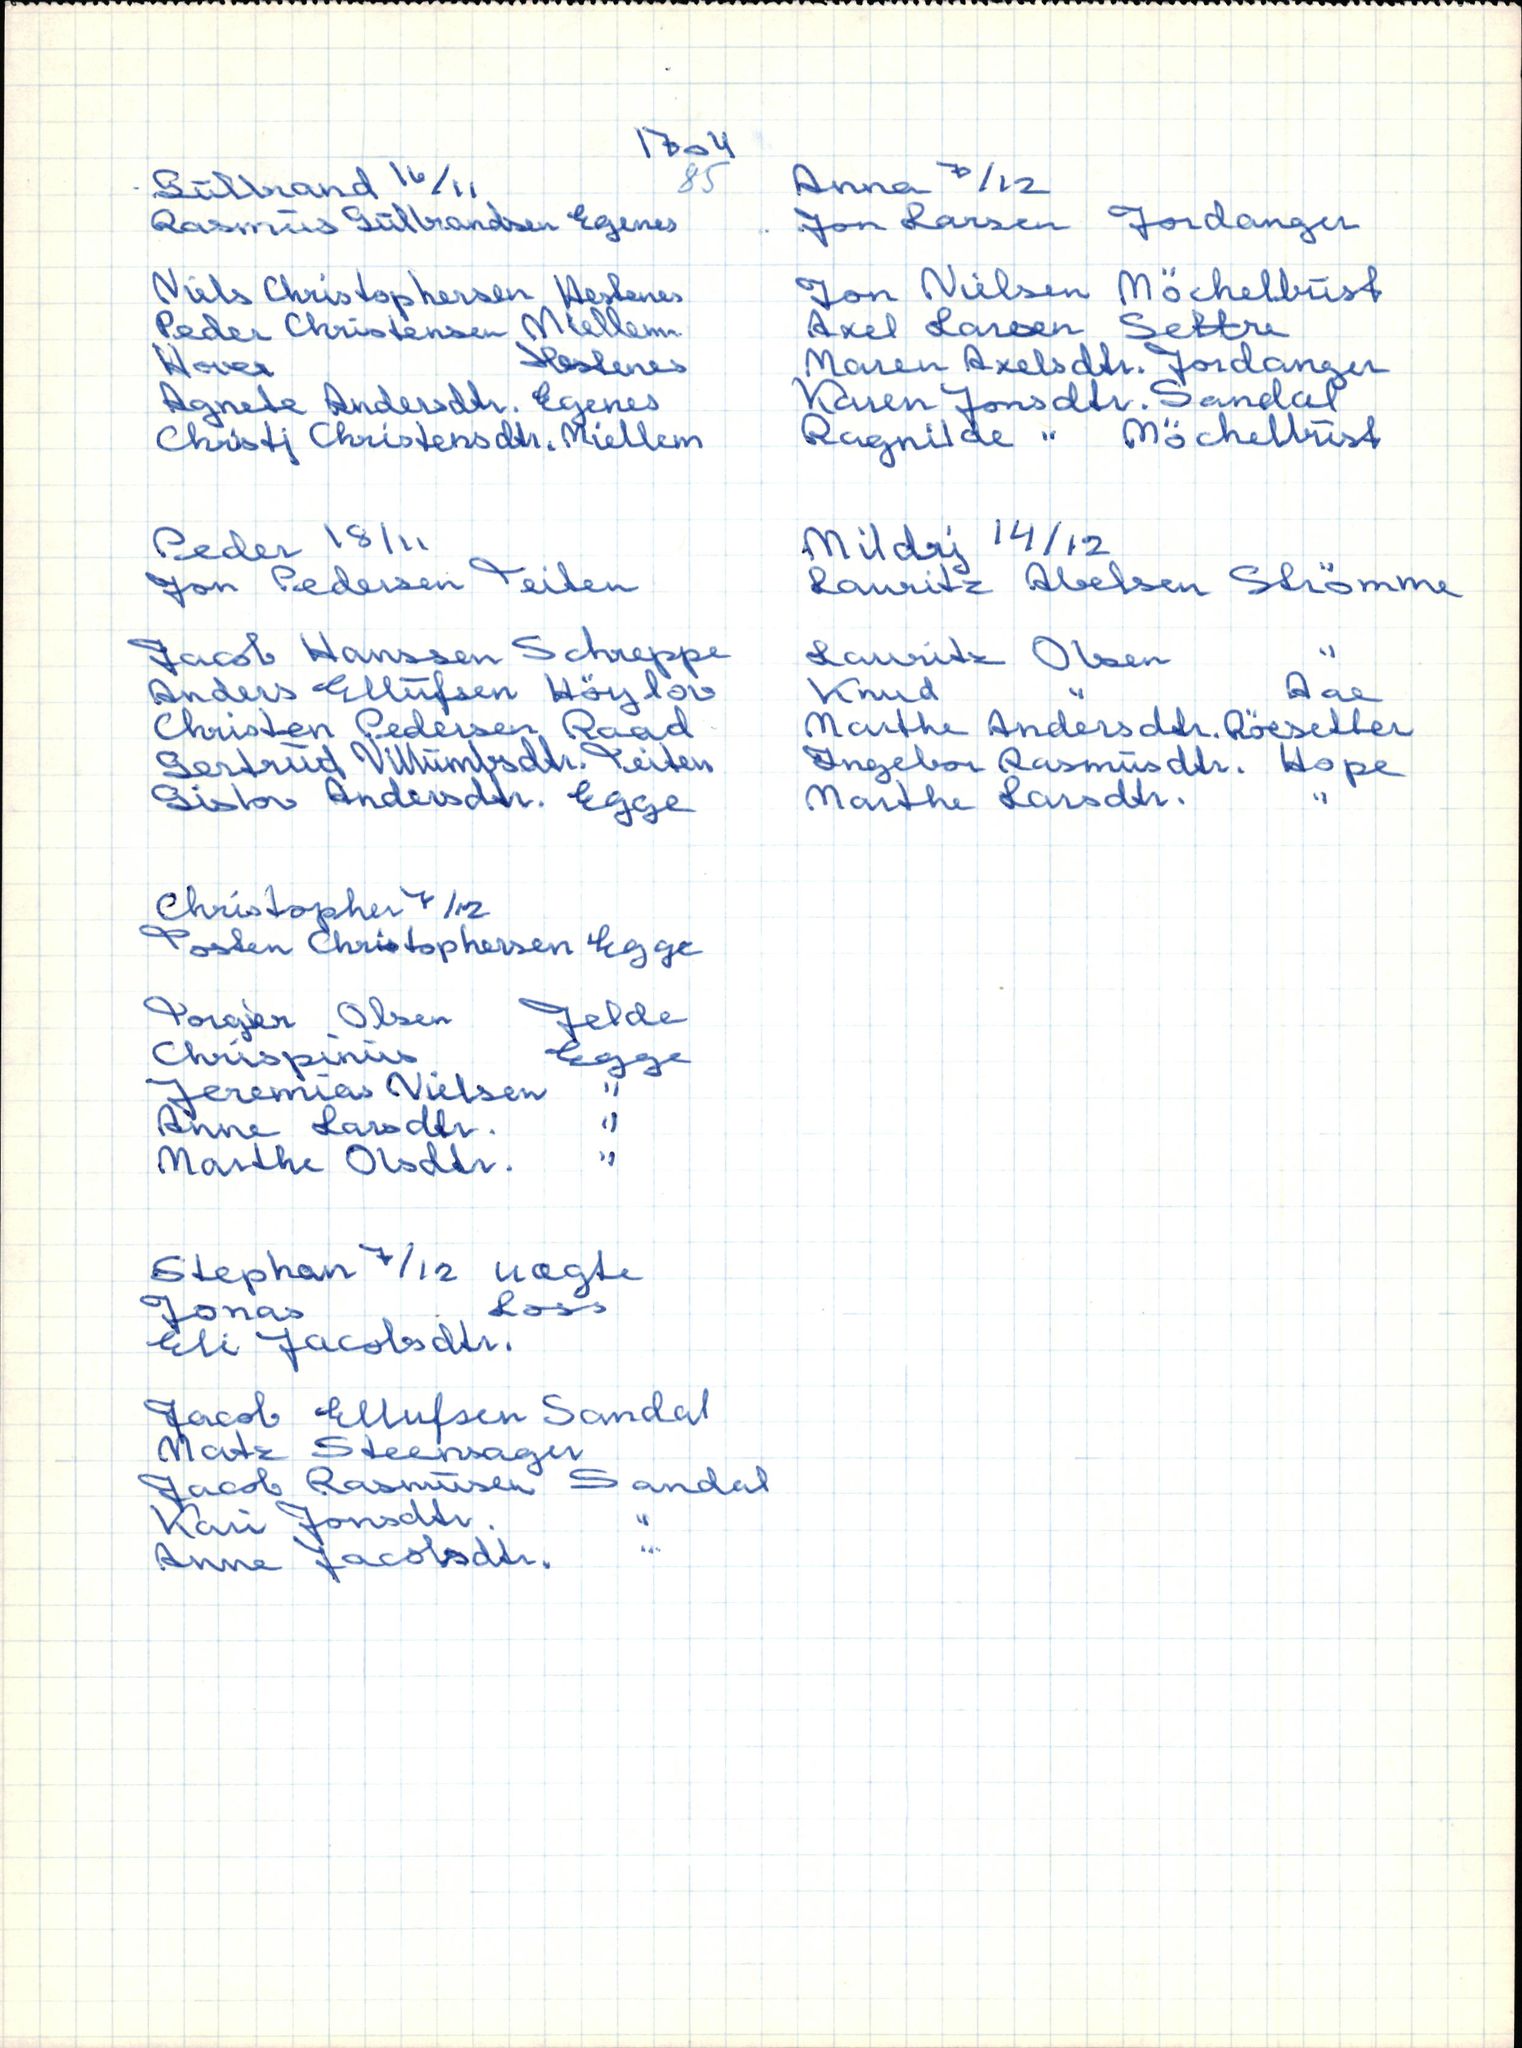 1704
85
Gülbrand 16/11
Rasmüs Gülbrandsen Egenes
Niels Christophersen Hestenes
Peder Christensen Miellem
Hover Hestenes
Agnete Andersdtr. Egenes
Christj Christensdtr. Miellem
Peder 18/11
Jon Pedersen Teiten
Jacob Hanssen Schreppe
Anders Ellüfsen Höylov
Christen Pedersen Raad
Gertrüd Villümbsdtr. Teiten
Gislov Andersdtr. Egge
Christopher 7/12
Tosten Christophersen Egge
Torgier Olsen Jelde
Chrispinüs Egge
Jeremias Nielsen "
Anne Larsdtr. "
Marthe Olsdtr. "
Stephan 7/12 uægte
Jonas Loss
Eli Jacobsdtr.
Jacob Ellufsen Sandal
Matz Steensager
Jacob Rasmüsen Sandal
Kari Jonsdtr. "
Anne Jacobsdtr. "
Anna 7/12
Jon Larsen Jordanger
Jon Nielsen Möchelbüst
Axel Larsen Settre
Maren Axelsdtr. Jordanger
Karen Jonsdtr. Sandal
Ragnilde " Möchelbüst
Mildrj 14/12
Lauritz Abelsen Strömme
Lauritz Olsen "
Knud " Aae
Marthe Andersdtr. Röesetter
Ingebor Rasmüsdtr. Hope
Marthe Larsdtr. "